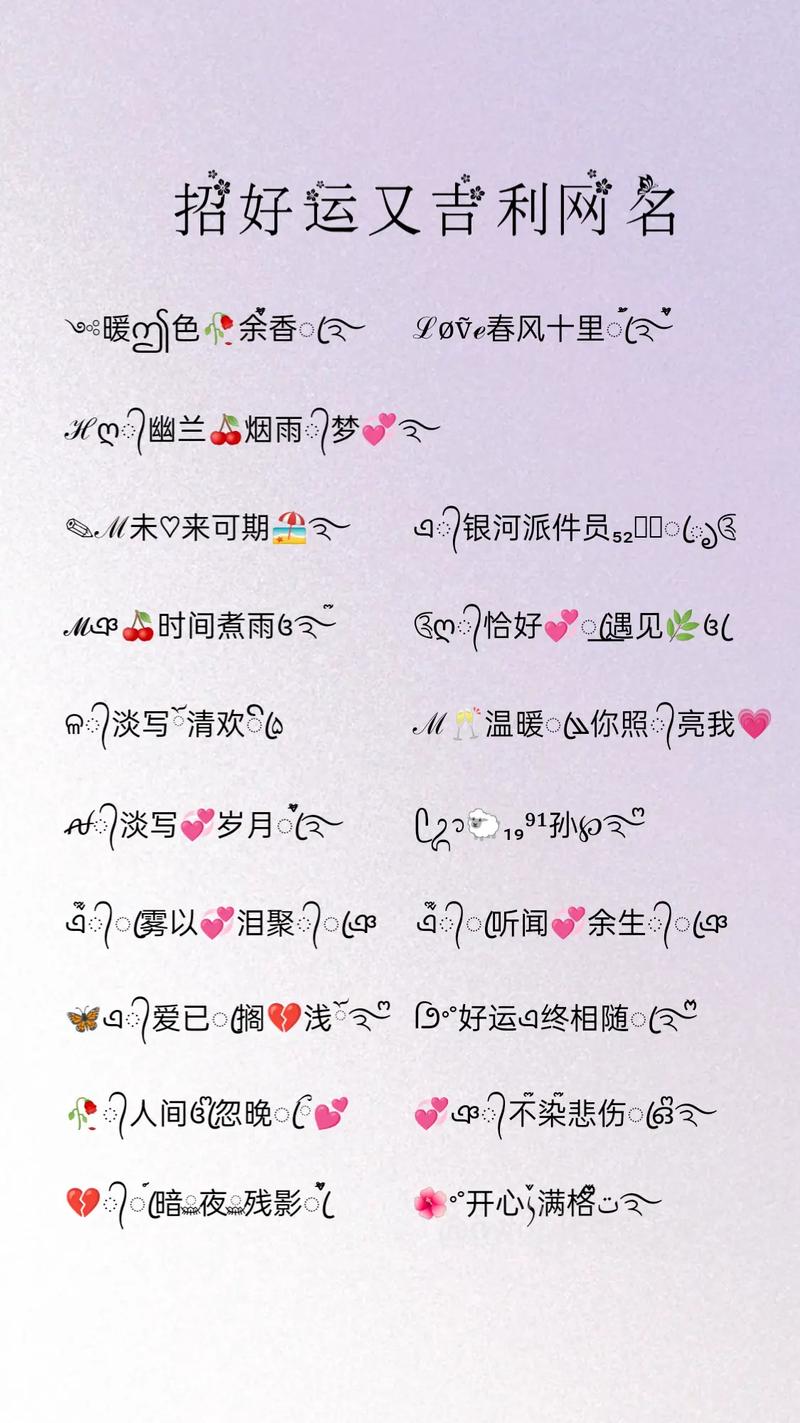 招好运又吉利网名
༄༅暖ဤ色🥀余香ꦿ໒࿐ ℒøṽℯ春风十里ꦿ໒࿐
ℋღ᭄幽兰🍒烟雨᭄梦💞࿐
✎ℳ未♡来可期🏖࿐ এ᭄银河派件员₅₂
ℳঞ🍒时间煮雨ও࿐ ღ᭄恰好💞遇见🌿ও
ଳ᭄淡写清欢 ℳ🥂温暖你照᭄亮我💗
᭄淡写💞岁月࿐ 🐑₁₉⁹¹孙℘࿐ྂ
এ᭄雾以💞泪聚᭄ঞ এ᭄听闻💞余生᭄ঞ
🦋এ᭄爱已搁💔浅࿐ ᦔ༠࿆好运এ终相随࿐
🥀᭄人间ও忽晚💕 💞ঞ᭄不染悲伤ও࿐
💔᭄暗夜残影 🌺開心满格ت࿐